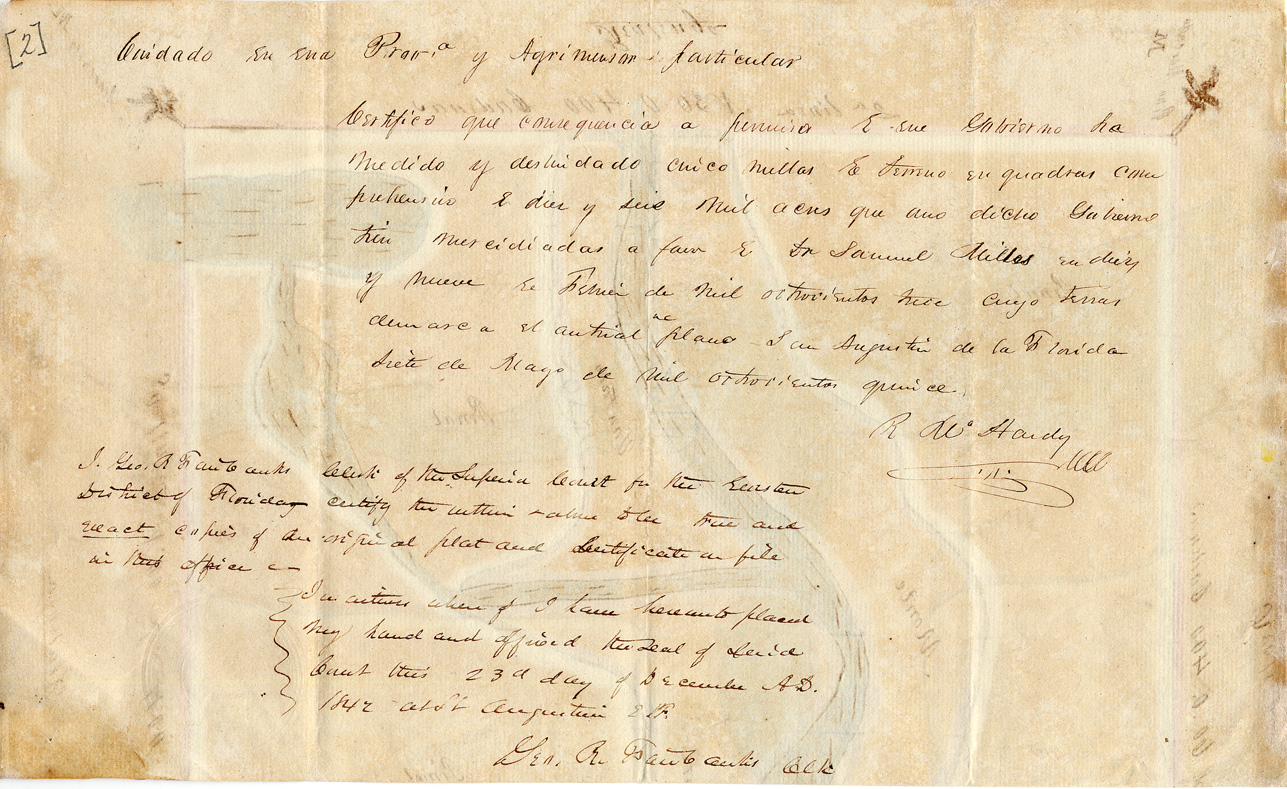 [2]
Cuidado en ena Prova y Agrimensor particular
Certifico que consequencia a E ene Gobierno ha
medido y deslindado cinco millas E terreno en quadras com
prehensivo E diez y seis mil acres que ano dicho Gobierno
tiene mercidiadas a favor E Dn Samuel Miller en diez
y nueve de de mil octrocientos trece cuyo terras
demarca el antrial ne plano San Augustin de la Florida
siete de Mayo de mil octrocientos quince.
R McHardy
I. Geo. R Fairbanks Clerk of the Superior Court for the Eastern
District of Florida certify the within & above to be true and
exact copies of the original plat and Certificate on file
in this office
In witness where of I have hereunto placed
my hand and affixed the Seal of Said
Court this 23d day of December A.D.
1842 at St Augustin E.F.
Geo. R. Fairbanks Clk